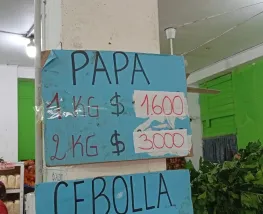 PAPA
1 KG $ 1600
2 KG $ 3000
CEBOLLA